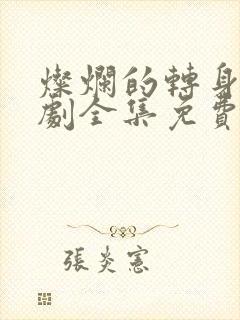 燦爛的轉身
劇全集免費
張炎憲